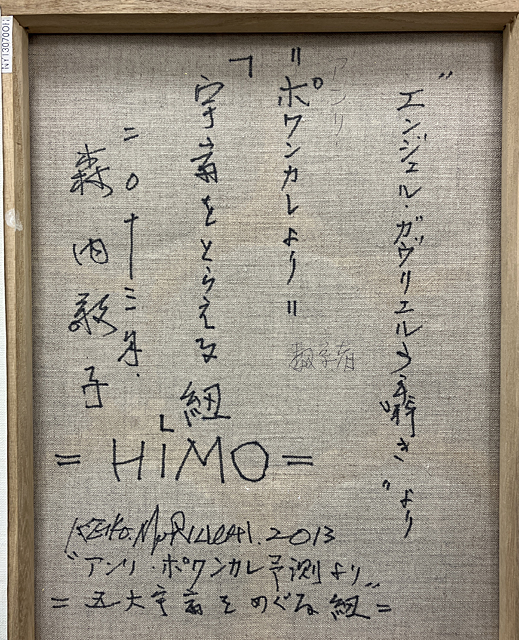 "エンジェル・ガヴリエルの囁き"より
アンリ・
"ポワンカレより"
数学者
「宇宙をとらえる紐」
二〇十三年.
森内敬子
=HiMO=
KEIKO.MORIUCHI.2013
"アンリ・ポワンカレ予測より"
=五大宇宙をめぐる紐=